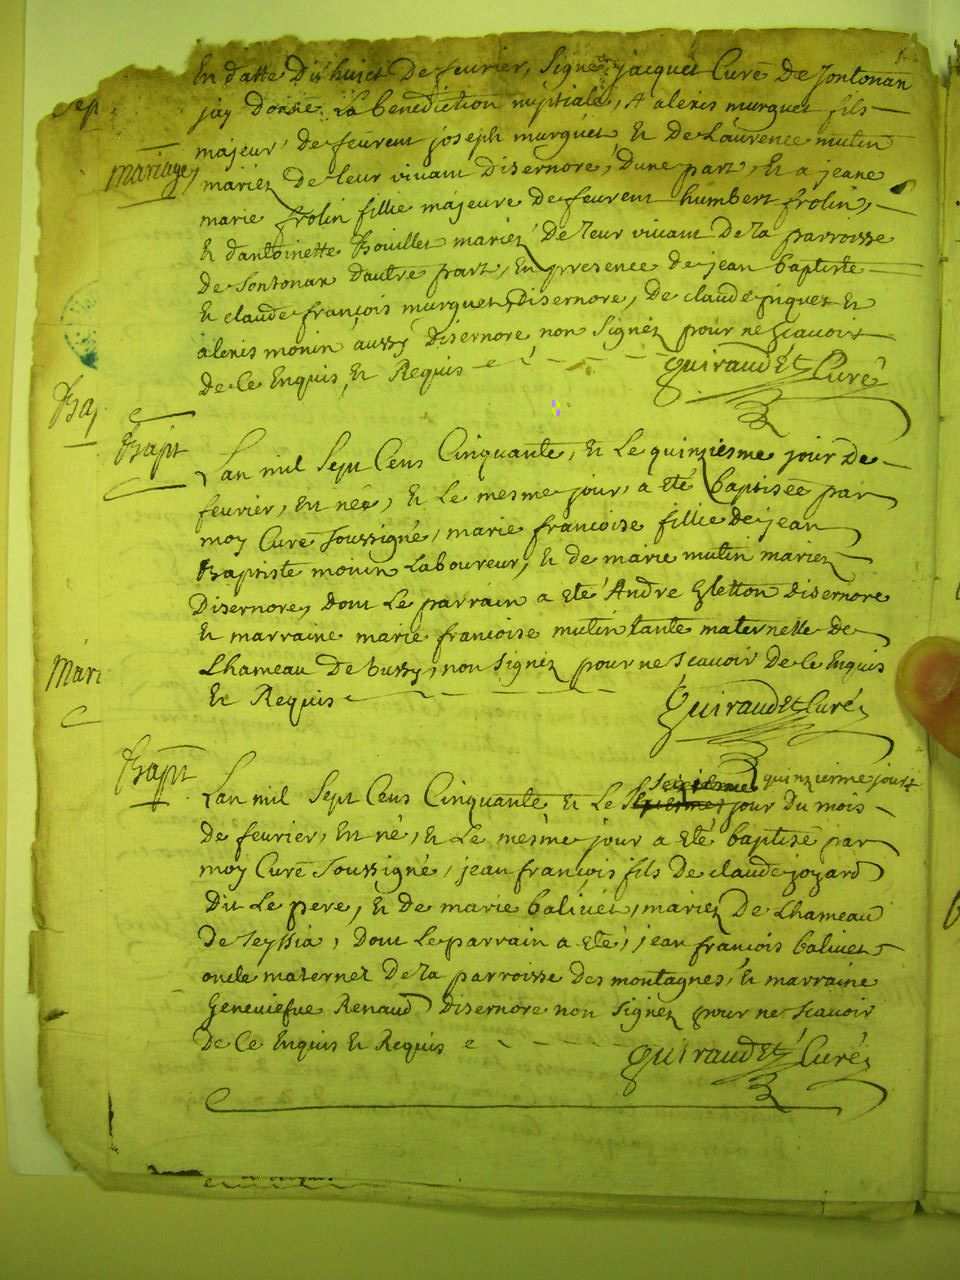 En datte Dix huict De feurier, Signé jacquet Curé De Sontonan
jay donné La benediction nuptiale, A alexis murguet fils
sep
majeur de feurent joseph murguet Et De Laurence mutin
mariage
mariez De leur viuant Disernore, D'une part, Et a jeane
marie frolin fillie majeure De feurent humbert frolin,
Et d'antoinette Bouillet mariez De leur viuant De La parroisse
de Sontonan d'autre part, En presence de jean baptiste
Et claude françois murguet, Disernore, De claude piquet Et
alexis monin aussy Disernore non Signéz pour ne scauoir
De Ce Enquis, Et Requis
Guiraudet Curé
Bap
Bapt
Lan mil Sept Cens Cinquante, Et Le quinziesme jour De
feurier, Est née, Et Le mesme jour, a eté baptisée par
moy Curé Soussigné, marie françoise fillie De jean
Baptiste monin Laboureur, Et de marie mutin mariez
Disernore, dont Le parrain a eté André Gletton Disernore
Et marraine marie françoise mutin tante maternelle De
Mari
Lhameau De bussy, non Signéz pour ne scauoir De Ce Enquis
Et Requis
Guiraudet Curé
Bapt
quinzieme jour
Lan mil Sept Cens Cinquante Et Le jour Du mois
De feurier, Est né, Et Le mesme jour a eté baptisé par
moy Curé Soussigné, jean françois fils De claude joyard
Dit Le pere, Et De marie baliuet, mariez De Lhameau
De Seyssia, Dont Le parrain a eté, jean françois baliuet
oncle maternel De La parroisse des montagnes, Et marraine
Geneuiefue Renaud Disernore non Signéz pour ne scauoir
De Ce Enquis Et Requis
Guiraudet Curé